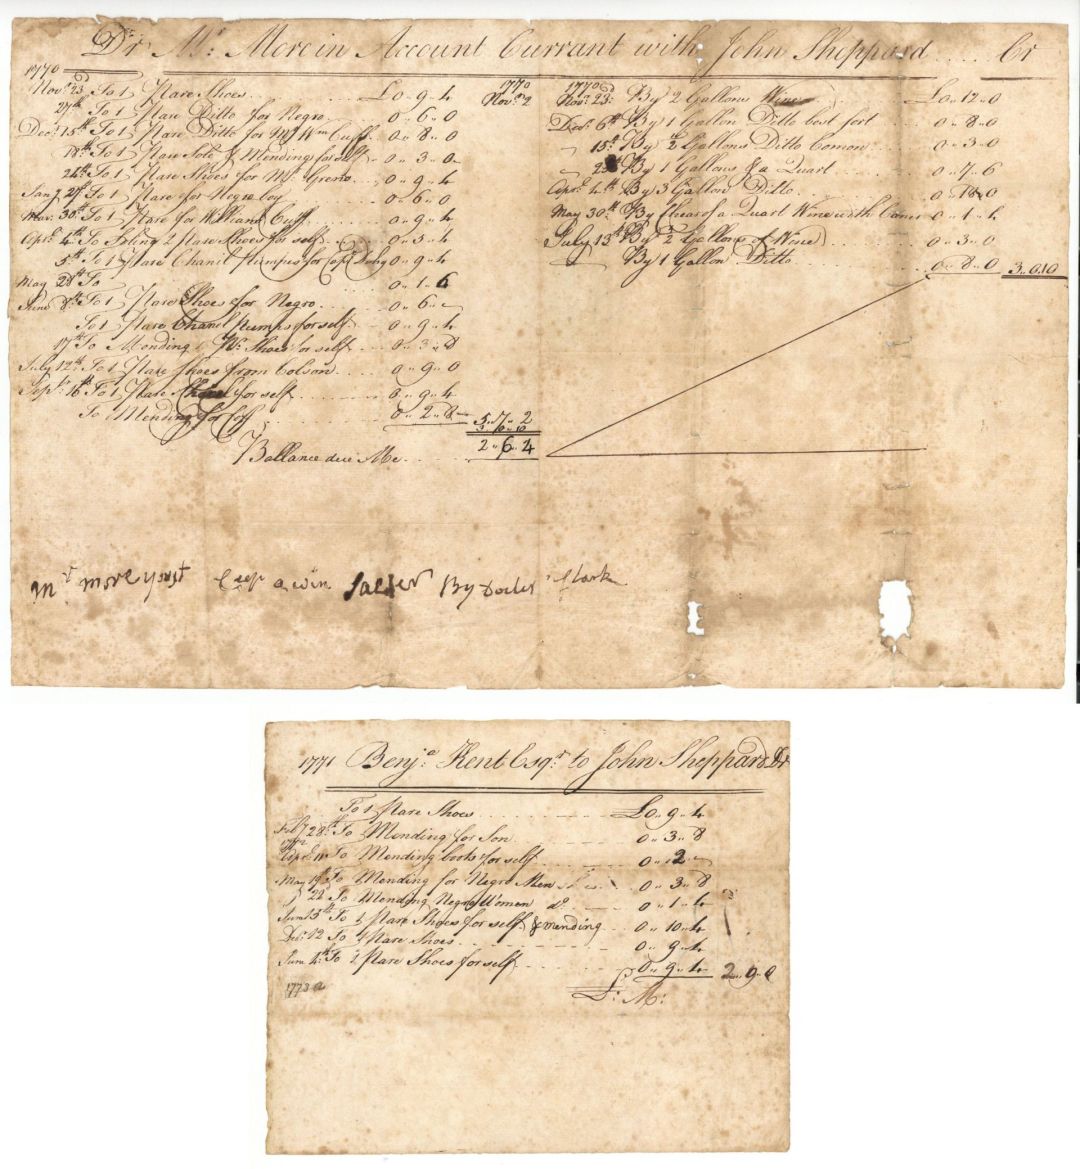 Dr Mr. More in Account Currant with John Sheppard ..... Cr
1770
Novr. 23d To 1 Pare Shoes £0 „ 9 „ 4
27th To 1 Pare Ditto for Negro 0 „ 6 „ 0
Decr. 15th To 1 Pare Ditto for Mr Wm Cuff 0 „ 8 „ 0
18th To 1 Pare Sole & Mendings for self 0 „ 3 „ 0
24th To 1 Pare Shoes for Mr. 0 „ 9 „ 4
Jany 27th To 1 Pare for Negro boy 0 „ 6 „ 0
Mar. 30th To 1 Pare for William Cuff 0 „ 9 „ 4
Aprl. 4th To 2 Pare Shoes for self 0 „ 3 „ 4
5th To 1 Pare Chanel Pumpes for 0 „ 9 „ 4
May 28th To 0 „ 1 „ 6
June 8th To 1 Pare Shoes for Negro 0 „ 6 „
To 1 Pare Chanel Pumps for self 0 „ 9 „ 4
17th To Mending 1 Pr. Shoes for self 0 „ 3 „ 8
July 12th To 1 Pare Shoes from Colson 0 „ 9 „ 0
Sept. 16th To 1 Pare Shoes for self 0 „ 9 „ 4
To Mending for 0 „ 2 „ 8 5 „ 7 „ 2
3 „ 0 „ 10
Ballance due Me 2 „ 6 „ 4
1770
Novr. 2
1770
Novr. 23d By 2 Gallons Wine £0 „ 12 „ 0
Decr. 6th By 1 Gallon Ditto best sort 0 „ 8 „ 0
15th By 2 Gallons Ditto Comon 0 „ 3 „ 0
22d By 1 Gallons & a Quart 0 „ 7 „ 6
Aprl. 4th By 3 Gallons Ditto 0 „ 18 „ 0
May 30th By of a Quart Wine with 0 „ 1 „ 4
July 13th By 2 Gallons of Wine 0 „ 3 „ 0
By 1 Gallon Ditto 0 „ 8 „ 0 3 „ 0 „ 10
Mr more a win By Clark
1771 Benja. Kent Esqr. to John Sheppard Dr
To 1 Pare Shoes £0 „ 9 „ 4
Feby 28th To Mending for Son 0 „ 3 „ 8
1772
Aprl. 10 To Mending boots for self 0 „ 2 „
May 19th To Mending for Negro Men 0 „ 3 „ 8
22 To Mending Negro Women do. 0 „ 1 „ 4
June 5th To 1 Pare Shoes for self & mending 0 „ 10 „ 4
Decr. 12 To 1 Pare Shoes 0 „ 9 „ 4
June 4th To 1 Pare Shoes for self 0 „ 9 „ 4 2 „ 9 „ 0
1773
L: M: